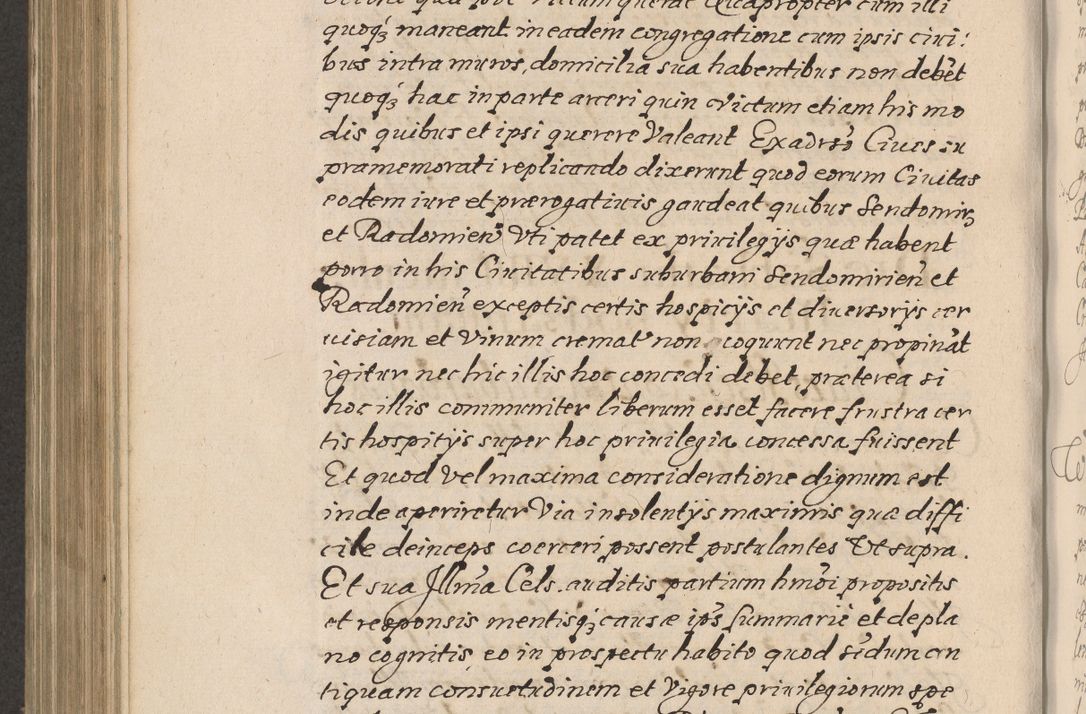 quoq₃ maneant in eadem congregatione cum ipsis ciui:
bus intra muros, domicilia sua habentibus non debēt
quoq₃ hac in parte arceri quin victum etiam his mo
dis quibus et ipsi querere Valeant Exadrsò Ciues su
pramemorati replicando dixerunt quod eorum Ciuitas
eodem iure et prærogatiuis gaudeat quibus Sendomir₃
et Radomien̄ Vti patet ex priuilegijs quæ habent
porro in his Ciuitatibus suburbani Sendomirien̄ et
Radomien̄ exceptis certis hospicijs et diuersorijs cer
uisiam et Vinum cremat' non coquunt nec propināt
igitur nec hic illis hoc concedi debet, præterea si
hoc illis communiter liberum esset facere frustra cer
tis hospitijs super hoc priuilegia concessa fuissent
Et quod Vel maxima consideratione dignum est
inde aperiretur Via insolentijs maximis quæ diffi
cile deinceps coerceri possent postulantes Vt supra.
Et sua Jllm̄a Cels. auditis partium hm̄oi propositis
et responsis mentisq₃ causæ ip̄s summarie et de pla
no cognitis, eo in prospectu habito quod s̄cdum an
tiquam consuetudinem et Vigore priuilegiorum spe